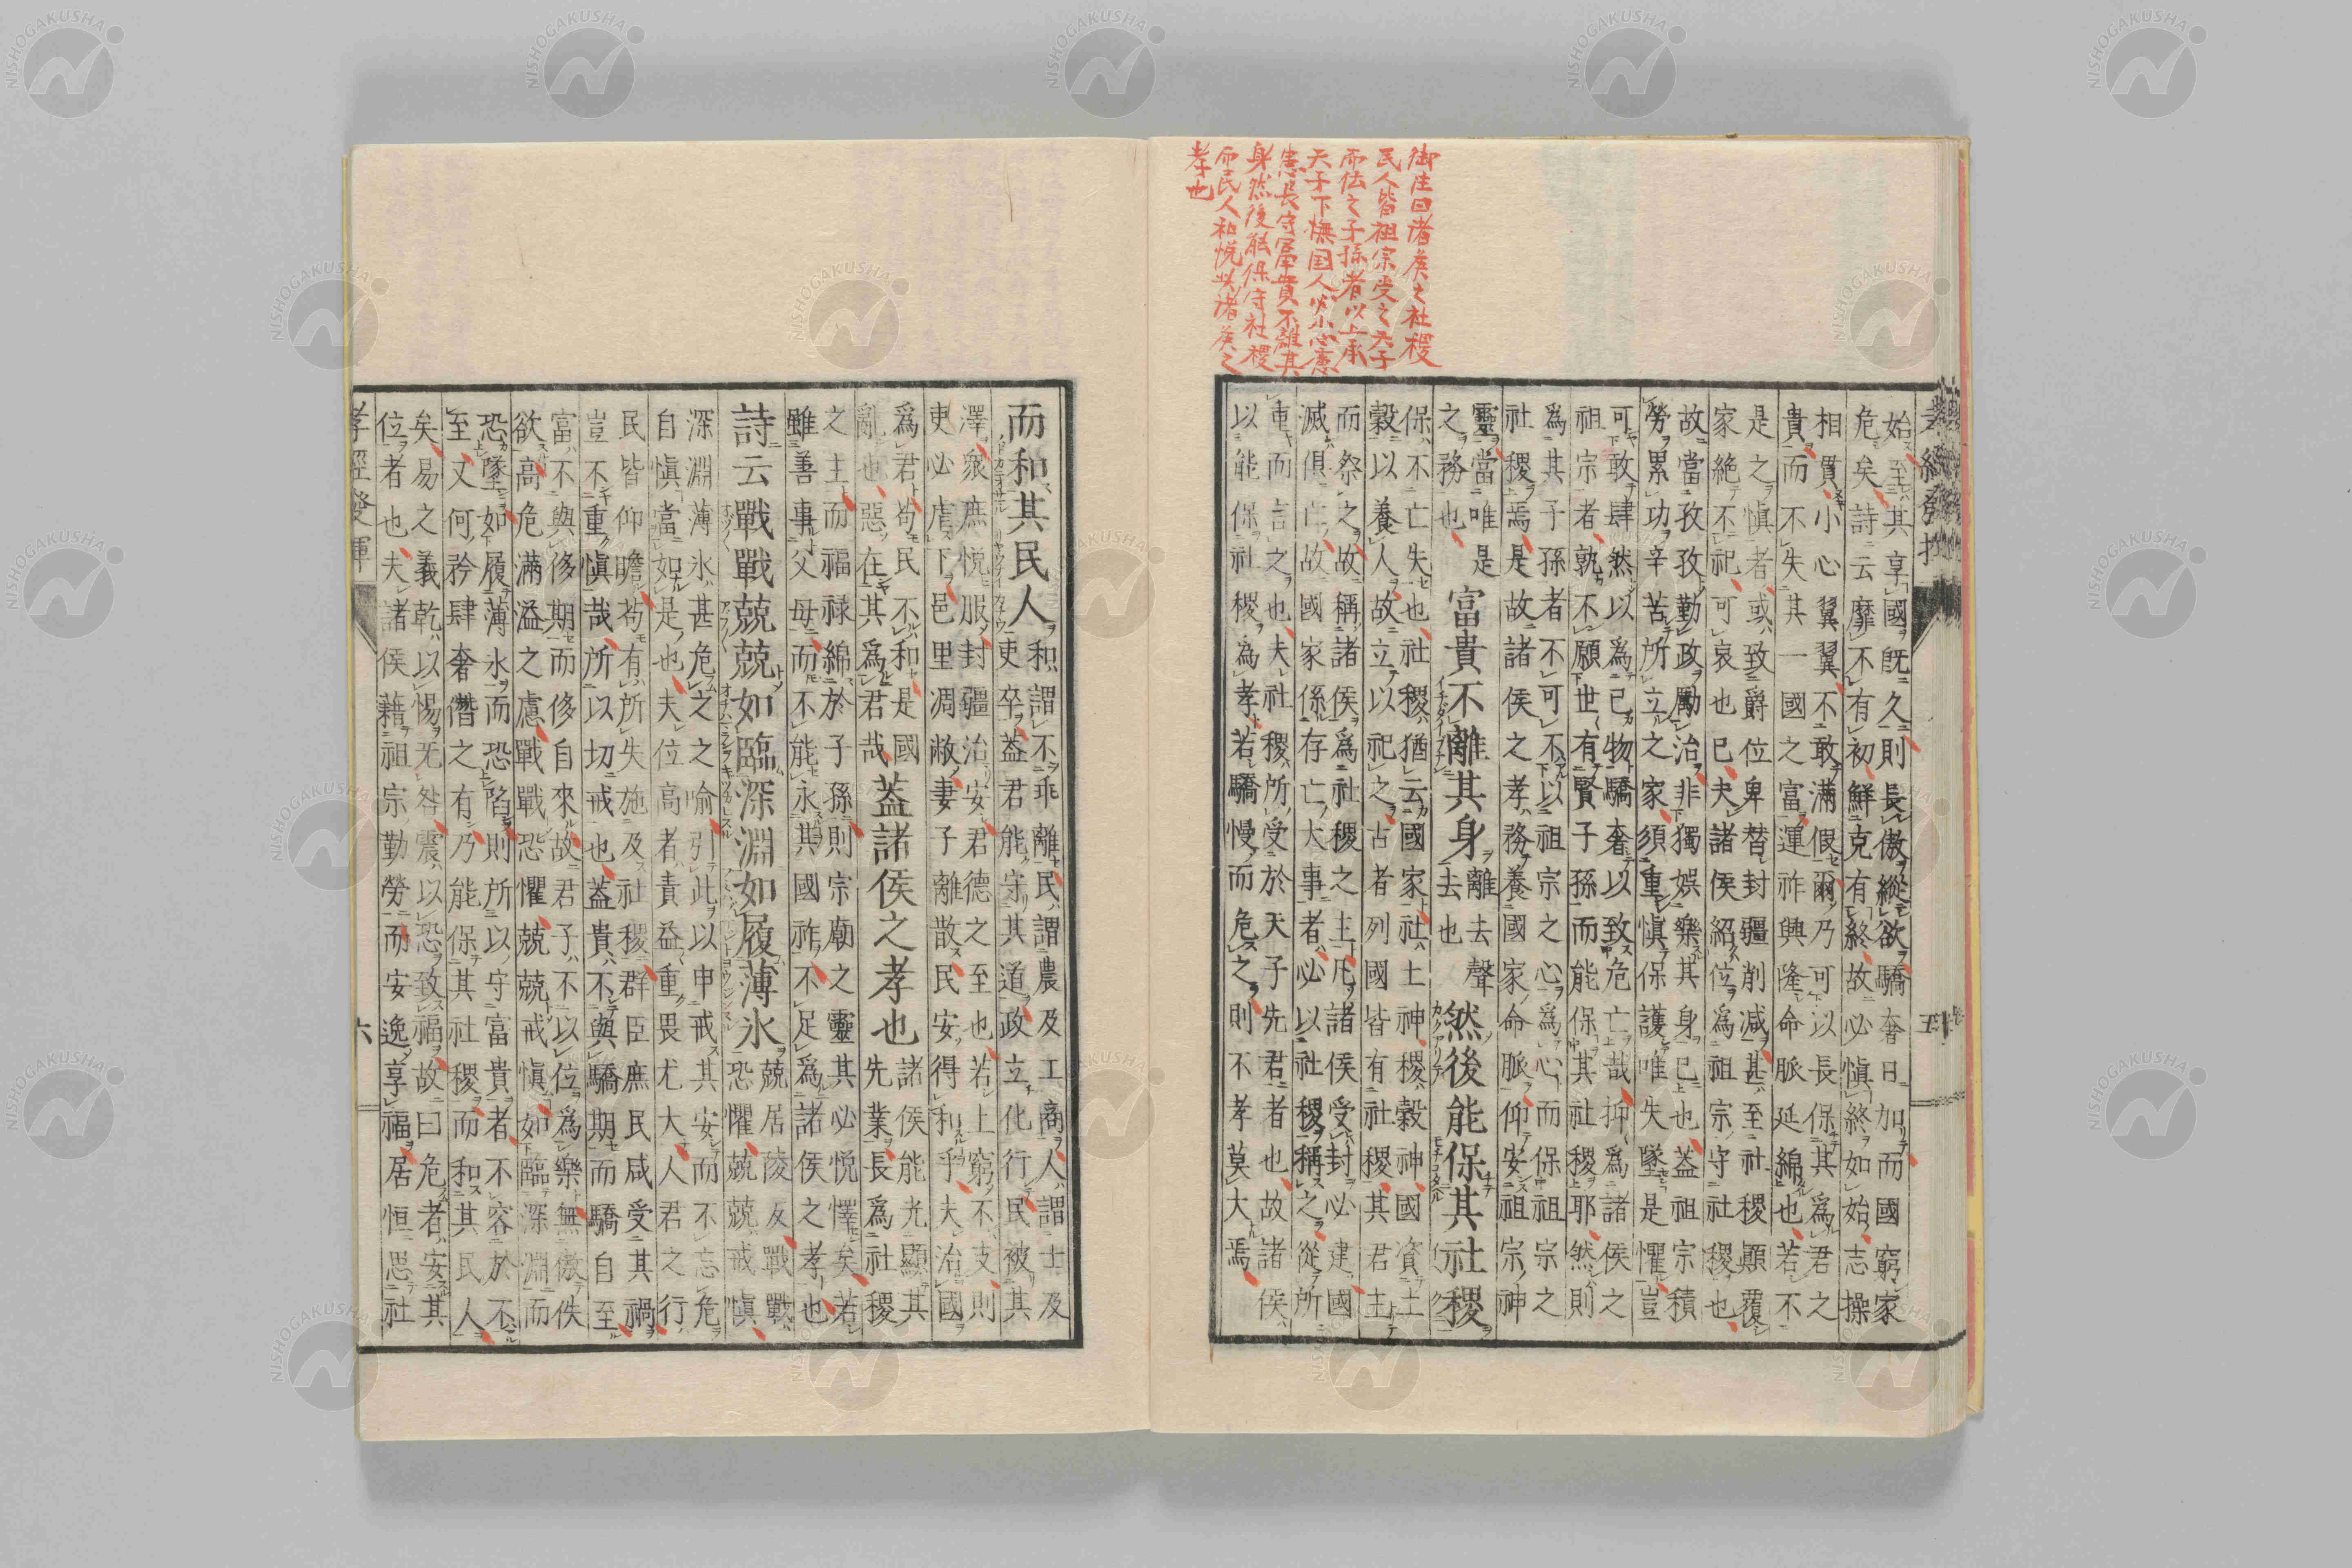 御注曰諸侯之社稷
民人皆祖宗受之天子
而伝之子孫者以上承
天子下撫国人必小心
長守富貴不離其
身然後能保守社稷
而民人和悦此諸侯之
孝也
始至其享國既久則長傲縱欲驕奢日加而國窮家
危矣詩云靡不有初鮮克有終故必慎終如始志操
相貫小心翼翼不敢滿假爾乃可以長保其爲君之
貴而不失其一國之富運祚興隆命脈延綿也若不
是之慎者或致爵位卑替封疆削減甚至社稷顚覆
家絶不祀可哀也已夫諸侯紹位爲祖宗守社稷也
故當孜孜勤政勵治非獨娯樂其身已也蓋祖宗積
勞累功辛苦所立之家須重慎保護唯失墜是懼豈
可敢肆然以爲己物驕奢以致危亡哉抑爲諸侯之
祖宗者孰不願世有賢子孫而能保其社稷耶然則
爲其子孫者不可不以祖宗之心爲心而保祖宗之
社稷焉是故諸侯之孝務養國家命脈仰安祖宗神
靈當唯是
之務也
富貴不離其身
離去聲
去也
然後能保其社稷
保不亡失也社稷猶云國家社土神稷穀神國資土
穀以養人故立以祀之古者列國皆有社稷其君主
而祭之故稱諸侯爲社稷之主凡諸侯受封必建國
滅俱亡故國家係存亡大事者必以社稷稱之從所
重而言之也夫社稷所受於天子先君者也故諸侯
以能保社稷爲孝若驕慢而危之則不孝莫大焉
而和其民人
和謂不乖離民謂農及工商人謂士及
吏卒蓋君能守其道政立化行民被其
澤衆庶悦服封疆治安君德之至也若上窮不支則
吏必虐下邑里凋敝妻子離散民安得和乎夫治國
爲君苟民不和是國
亂也惡在其爲君哉
蓋諸侯之孝也
諸侯能光顯其
先業長爲社稷
之主而福禄綿於子孫則宗廟之靈其必悦懌矣若
雖善事父母而不能永其國祚不足爲諸侯之孝也
詩云戰戰兢兢如臨深淵如履薄氷
兢居陵反戰戰
恐懼兢兢戒愼
深淵薄氷甚危之之喩引此以申戒其安而不忘危
自愼當如是也夫位高者責益重畏尤大人君之行
民皆仰瞻苟有所失施及社稷群臣庶民咸受其禍
豈不重愼哉所以切戒也蓋貴不與驕期而驕自至
富不與侈期而侈自來故君子不以位爲樂無傲佚
欲高危滿溢之慮戰戰恐懼兢兢戒愼如臨深淵而
恐墜如履薄氷而恐陷則所以守富貴者不容於不
至又何矜肆奢僭之有乃能保其社稷而和其民人
矣易之義乾以惕无咎震以恐致福故曰危者安其
位者也夫諸侯藉祖宗勤勞而安逸享福居恒思社
孝經發揮
六